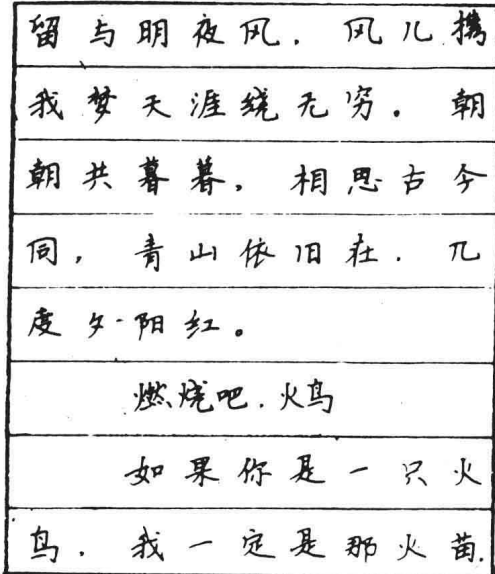 留与明夜风. 风儿携
我梦天涯绕无穷。朝
朝共暮暮, 相思古今
同, 青山依旧在. 几
度夕阳红。
燃烧吧.火鸟
如果你是一只火
鸟. 我一定是那火苗.